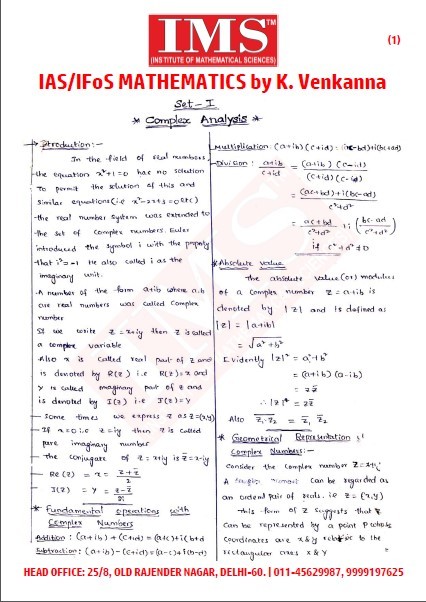 IMS™
(INSTITUTE OF MATHEMATICAL SCIENCES)
(1)
IAS/IFoS MATHEMATICS by K. Venkanna
Set - I
* Complex Analysis *
Introduction:-
In the field of real numbers,
the equation x²+1=0 has no solution
To permit the solution of this and
similar equations (i.e x²-2x+3=0 etc)
the real number system was extended to
the set of complex numbers. Euler
introduced the symbol i with the property
that i²=-1 He also called i as the
imaginary unit.
A number of the form a+ib where a,b
are real numbers was called Complex
number
If we write z=x+iy then z is called
a complex variable
Also x is called real part of z and
is denoted by R(z) i.e R(z)=x and
y is called imaginary part of z and
is denoted by I(z) i.e I(z)=y
Some times we express z as z=(x,y)
If x=0 i.e z=iy then z is called
pure imaginary number
The conjugate of z=x+iy is z̄=x-iy
Re(z) = x = (z+z̄)/2
I(z) = y = (z-z̄)/2i
* Fundamental operations with
Complex Numbers
Addition : (a+ib)+(c+id)=(a+c)+i(b+d
Subtraction: (a+ib)-(c+id)=(a-c)+i(b-d)
Multiplication: (a+ib)(c+id)=(ac-bd)+i(bc+ad)
Division : (a+ib)/(c+id) = (a+ib)(c-id)/(c+id)(c-id)
= ((ac+bd)+i(bc-ad))/(c²+d²)
= (ac+bd)/(c²+d²) + i((bc-ad)/(c²+d²))
if c²+d²≠0
* Absolute value
The absolute value (or) modulus
of a complex number z=a+ib is
denoted by |z| and is defined as
|z| = |a+ib|
= √(a²+b²)
Evidently |z|² = a²+b²
= (a+ib)(a-ib)
= z z̄
∴ |z|² = z z̄
Also
* Geometrical Representation of
Complex Numbers:-
Consider the complex number z=x+iy
A complex number can be regarded as
an ordered pair of reals. i.e z=(x,y)
This form of z suggests that z
can be represented by a point P whose
coordinates are x & y relative to the
rectangular axes x & y
HEAD OFFICE: 25/8, OLD RAJENDER NAGAR, DELHI-60. | 011-45629987, 9999197625